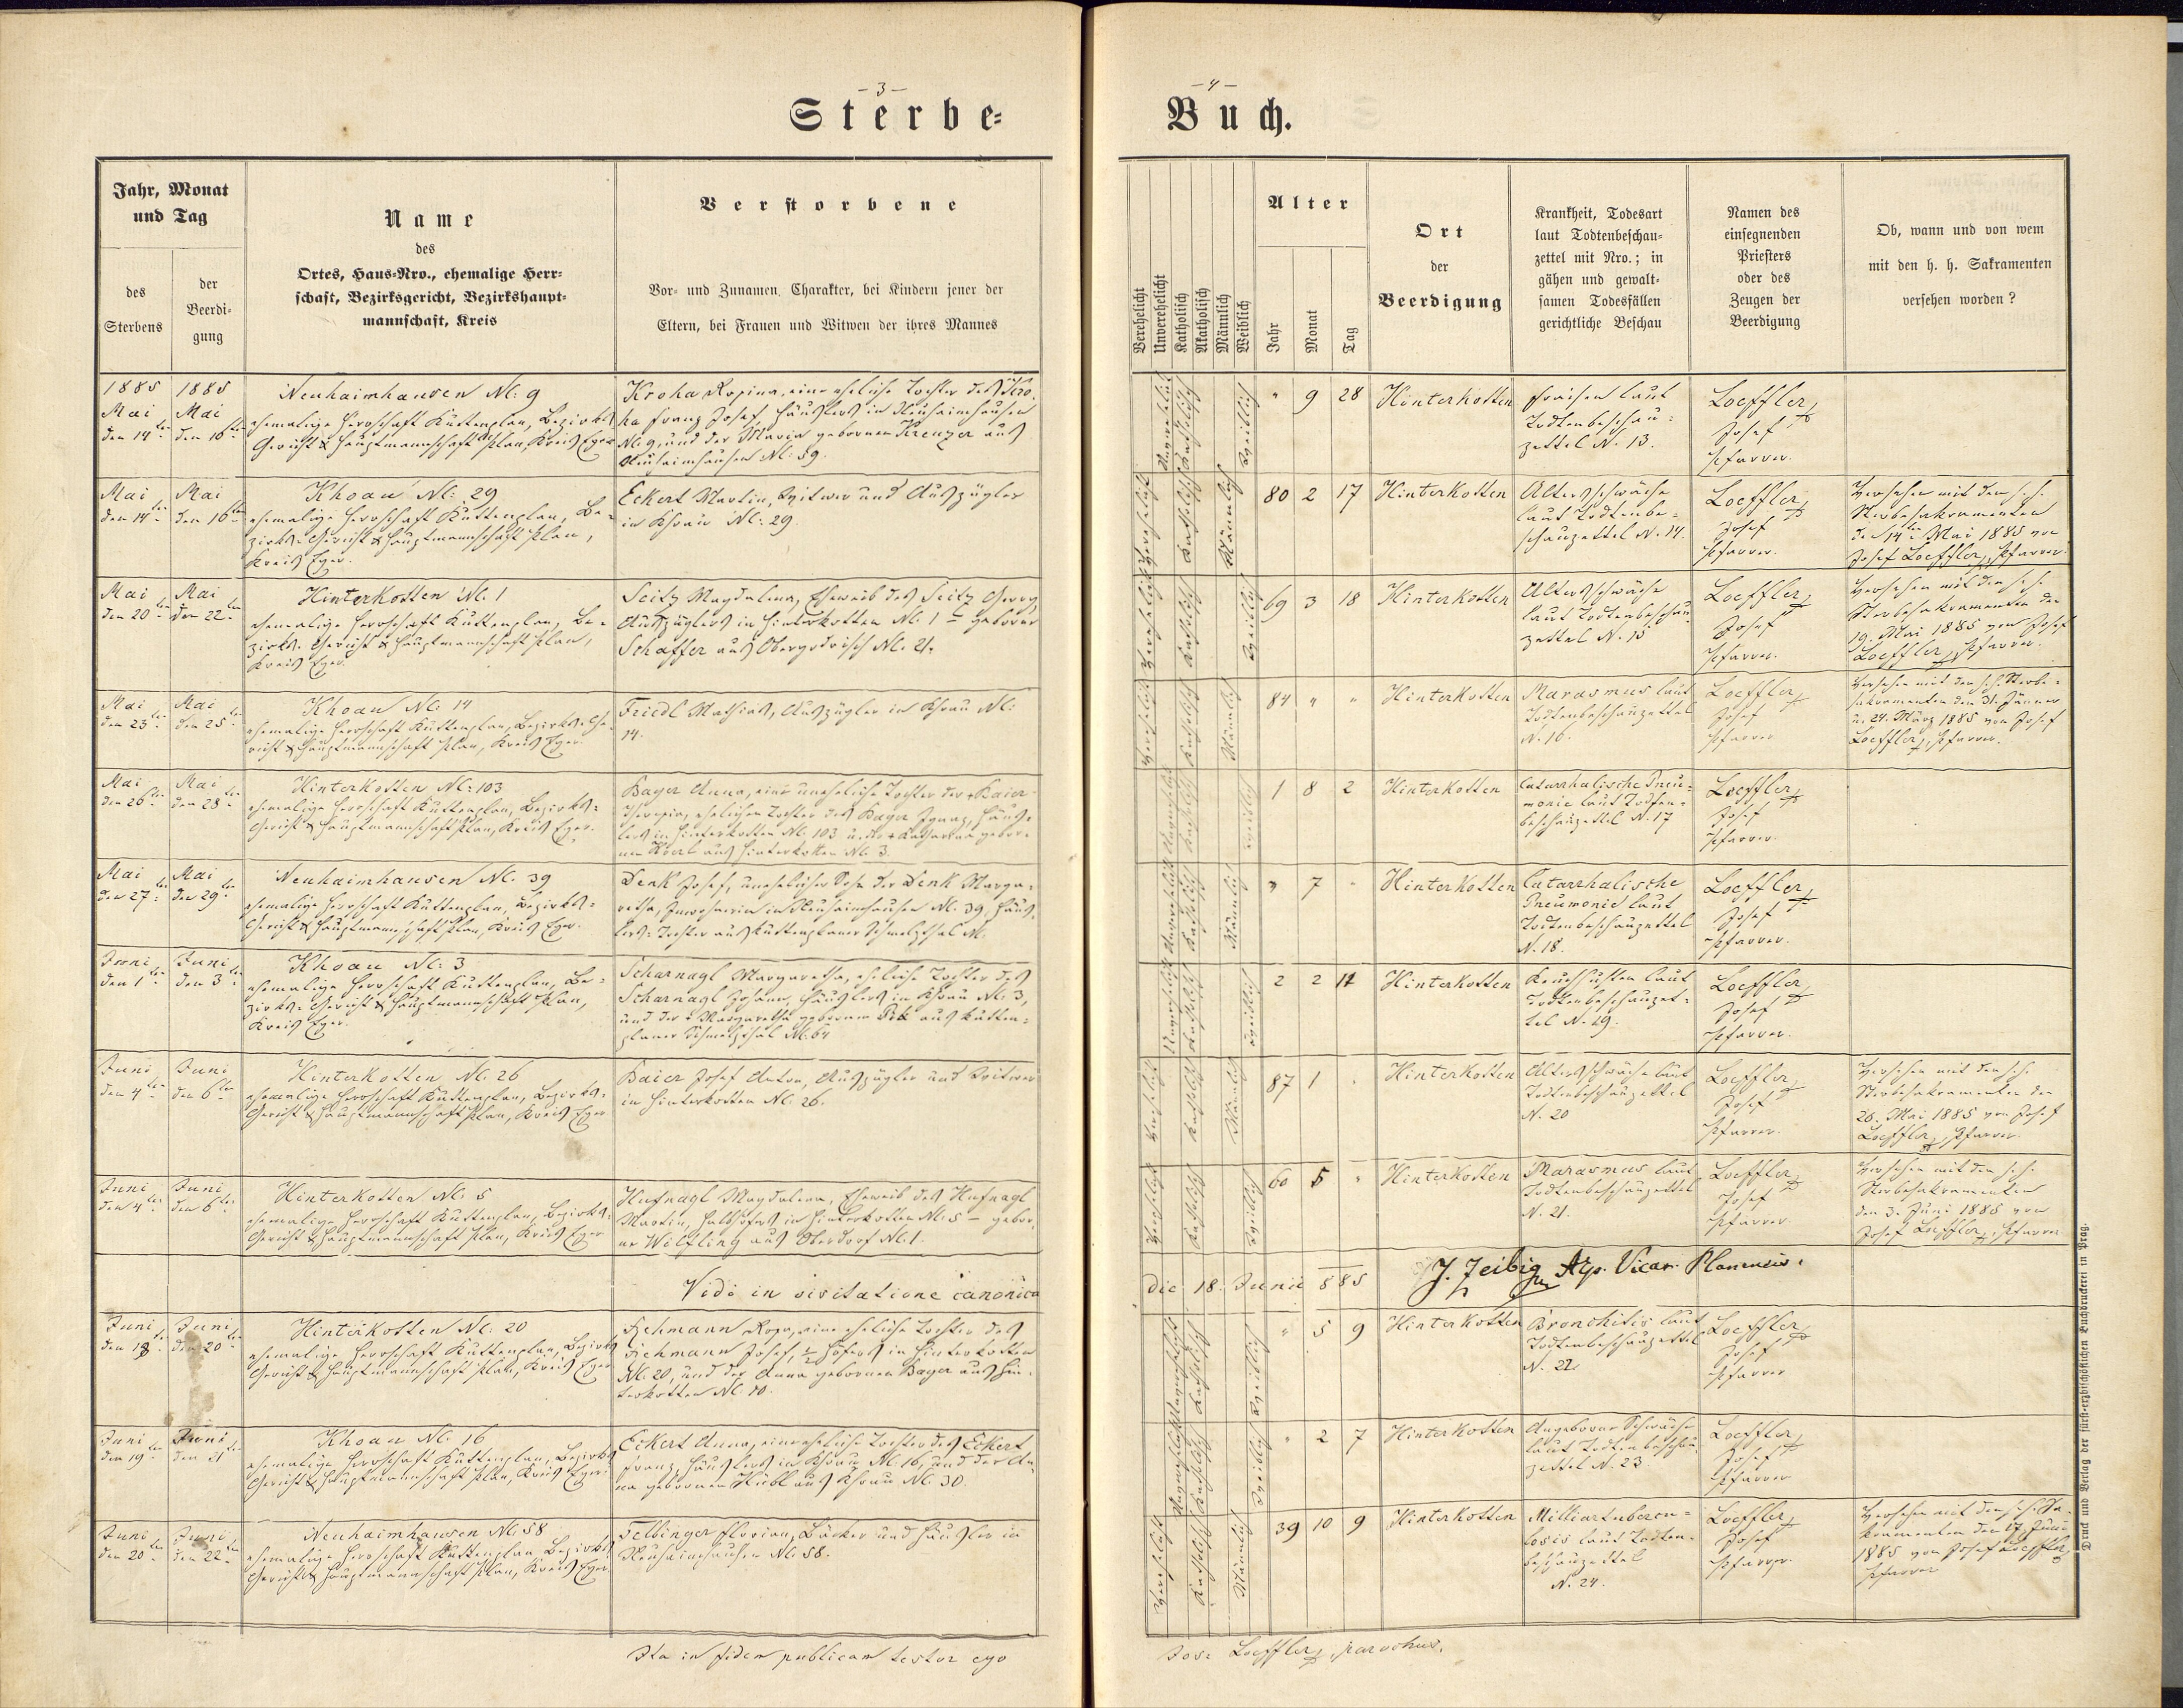 - 3 -
Sterbe-
Jahr, Monat
und Tag
des
Sterbens
der
Beerdi-
gung
Name
des
Ortes, Haus-Nro., ehemalige Herr-
schaft, Bezirksgericht, Bezirkshaupt-
mannschaft, Kreis
Verstorbene
Vor- und Zunamen, Charakter, bei Kindern jener der
Eltern, bei Frauen und Witwen der ihres Mannes
1885
Mai
den 14ten
1885
Mai
den 16ten
Neuhaimhausen N: 9
ehemalige Herrschaft Kuttenplan, Bezirks
Gericht & Hauptmannschaft Plan, Kreis Eger
Kroha Rosina, eine eheliche Tochter des Kro-
ha Franz Josef, Häuslers in Neuhaimhausen
N: 9, und der Maria gebornen Kreuzer aus
Neuhaimhausen N: 59.
Mai
den 14ten
Mai
den 16ten
Khoau N: 29
ehemalige Herrschaft Kuttenplan, Be-
zirks-Gericht & Hauptmannschaft Plan,
Kreis Eger.
Eckert Martin, Witwer und Auszügler
in Khoau N: 29.
Mai
den 20ten
Mai
den 22ten
Hinterkotten N: 1
ehemalige Herrschaft Kuttenplan, Be-
zirks-Gericht & Hauptmannschaft Plan,
Kreis Eger.
Seitz Magdalena, Eheweib des Seitz Georg,
Auszüglers in Hinterkotten N: 1 geborne
Schaffer aus Obergodrisch N: 21.
Mai
den 23ten
Mai
den 25ten
Khoau N: 14
ehemalige Herrschaft Kuttenplan, Bezirks-Ge-
richt & Hauptmannschaft Plan, Kreis Eger.
Friedl Mathias, Auszügler in Khoau N:
14.
Mai
den 26ten
Mai
den 28ten
Hinterkotten N: 103
ehemalige Herrschaft Kuttenplan, Bezirks-
Gericht & Hauptmannschaft Plan, Kreis Eger.
Bayer Anna, eine uneheliche Tochter der Baier
Theresia, ehelichen Tochter des Bayer Ignaz, Häus-
lers in Hinterkotten N: 103 u. der + Katharina gebor-
nen aus Hinterkotten N: 3.
Mai
den 27ten
Mai
den 29ten
Neuhaimhausen N: 39
ehemalige Herrschaft Kuttenplan, Bezirks-
Gericht & Hauptmannschaft Plan, Kreis Eger.
Denk Josef, unehelicher Sohn der Denk Marga-
retha, Inwohnerin in Neuhaimhausen N: 39 Häus-
lers-Tochter aus Kuttenplaner Schmelzthal N:
Juni
den 1ten
Juni
den 3ten
Khoau N: 3
ehemalige Herrschaft Kuttenplan, Be-
zirks-Gericht & Hauptmannschaft Plan,
Kreis Eger.
Scharnagl Margaretha, eheliche Tochter des
Scharnagl Johann, Häuslers in Khoau N: 3,
und der Margaretha gebornen aus Kutten-
planer Schmelzthal N: 64
Juni
den 4ten
Juni
den 6ten
Hinterkotten N: 26
ehemalige Herrschaft Kuttenplan, Bezirks-
Gericht & Hauptmannschaft Plan, Kreis Eger
Baier Josef Anton, Auszügler und Witwer
in Hinterkotten N: 26.
Juni
den 4ten
Juni
den 6ten
Hinterkotten N: 5
ehemalige Herrschaft Kuttenplan, Bezirks-
Gericht & Hauptmannschaft Plan, Kreis Eger
Hufnagl Magdalena, Eheweib des Hufnagl
Martin, Halbhöfers in Hinterkotten N: 5 - gebor-
ne Wilfling aus Oberdorf N: 1.
Vidi in visitatione canonica
Juni
den 18ten
Juni
den 20ten
Hinterkotten N: 20
ehemalige Herrschaft Kuttenplan, Bezirks
Gericht & Hauptmannschaft Plan, Kreis Eger
Fichmann Rosa, eine eheliche Tochter des
Fichmann Josef, 1/2 Höfers in Hinterkotten
N: 20, und der Anna gebornen Bayer aus Hin-
terkotten N: 10.
Juni
den 19ten
Juni
den 21ten
Khoau N: 16
ehemalige Herrschaft Kuttenplan, Bezirks
Gericht & Hauptmannschaft Plan, Kreis Eger
Eckert Anna, eine eheliche Tochter des Eckert
Franz, Häuslers in Khoau N: 16, und der An-
na gebornen Hübl aus Khoau N: 30.
Juni
den 20ten
Juni
den 22ten
Neuhaimhausen N: 58
ehemalige Herrschaft Kuttenplan, Bezirks
Gericht & Hauptmannschaft Plan, Kreis Eger
Felbinger Florian, Bäcker und Häusler in
Neuhaimhausen N: 58.
Ita in fidem publicam testor ego
- 4 -
Buch.
Verehelicht
Unverehelicht
Katholisch
Akatholisch
Männlich
Weiblich
Alter
Jahr
Monat
Tag
Ort
der
Beerdigung
Krankheit, Todesart
laut Todtenbeschau-
zettel mit Nro.; in
gähen und gewalt-
samen Todesfällen
gerichtliche Beschau
Namen des
einsegnenden
Priesters
oder des
Zeugen der
Beerdigung
Ob, wann und von wem
mit den h. h. Sakramenten
versehen worden?
Unverehelicht Katholisch Weiblich
" 9 28 Hinterkotten
Fraisen laut
Todtenbeschau-
zettel N. 13.
Loeffler,
Josef
Pfarrer.
Verehelicht Katholisch Männlich
80 2 17 Hinterkotten
Altersschwäche
laut Todtenbe-
schauzettel N. 14.
Loeffler,
Josef
Pfarrer.
Versehen mit den h. h.
Sterbesakramenten
den 14ten Mai 1885 von
Josef Loeffler, Pfarrer.
Verehelicht Katholisch Weiblich
69 3 18 Hinterkotten
Altersschwäche
laut Todtenbeschau-
zettel N. 15
Loeffler,
Josef
Pfarrer.
Versehen mit den h. h.
Sterbesakramenten den
19. Mai 1885 von Josef
Loeffler, Pfarrer.
Verehelicht Katholisch Männlich
84 " " Hinterkotten
Marasmus laut
Todtenbeschauzettel
N. 16.
Loeffler,
Josef
Pfarrer
Versehen mit den h. h. Sterbe-
sakramenten den 31. Jänner
u. 24. März 1885 von Josef
Loeffler, Pfarrer.
Unverehelicht Katholisch Weiblich
1 8 2 Hinterkotten
Catarrhalische Pneu-
monie laut Todten-
beschauzettel N. 17
Loeffler,
Josef
Pfarrer.
Unverehelicht Katholisch Männlich
" 7 " Hinterkotten
Catarrhalische
Pneumonie laut
Todtenbeschauzettel
N. 18.
Loeffler,
Josef
Pfarrer.
Unverehelicht Katholisch Weiblich
2 2 11 Hinterkotten
Keuchhusten laut
Todtenbeschauzet-
tel N. 19.
Loeffler,
Josef
Pfarrer.
Verehelicht Katholisch Männlich
87 1 " Hinterkotten
Altersschwäche laut
Todtenbeschauzettel
N. 20
Loeffler,
Josef
Pfarrer.
Versehen mit den h. h.
Sterbesakramenten den
26. Mai 1885 von Josef
Loeffler, Pfarrer.
Verehelicht Katholisch Weiblich
60 5 " Hinterkotten
Marasmus laut
Todtenbeschauzettel
N. 21.
Loeffler,
Josef
Pfarrer
Versehen mit den h. h.
Sterbesakramenten
den 3. Juni 1885 von
Josef Loeffler, Pfarrer
die 18. Junii 885 J. Zeibig Vicar. Planensis.
Unverehelicht Katholisch Weiblich
" 5 9 Hinterkotten
Bronchitis laut
Todtenbeschauzettel
N. 22.
Loeffler,
Josef
Pfarrer
Unverehelicht Katholisch Weiblich
" 2 7 Hinterkotten
Angeborne Schwäche
laut Todtenbeschau-
zettel N. 23
Loeffler,
Josef
Pfarrer
Verehelicht Katholisch Männlich
39 10 9 Hinterkotten
Milliartubercu-
losis laut Todten-
beschauzettel
N. 24.
Loeffler,
Josef
Pfarrer.
Versehen mit den h. h. Sa-
kramenten den 17. Juni
1885 von Josef Loeffler,
Pfarrer
Jos: Loeffler, parochus.
Druck und Verlag der fürst-erzbischöflichen Buchdruckerei in Prag.